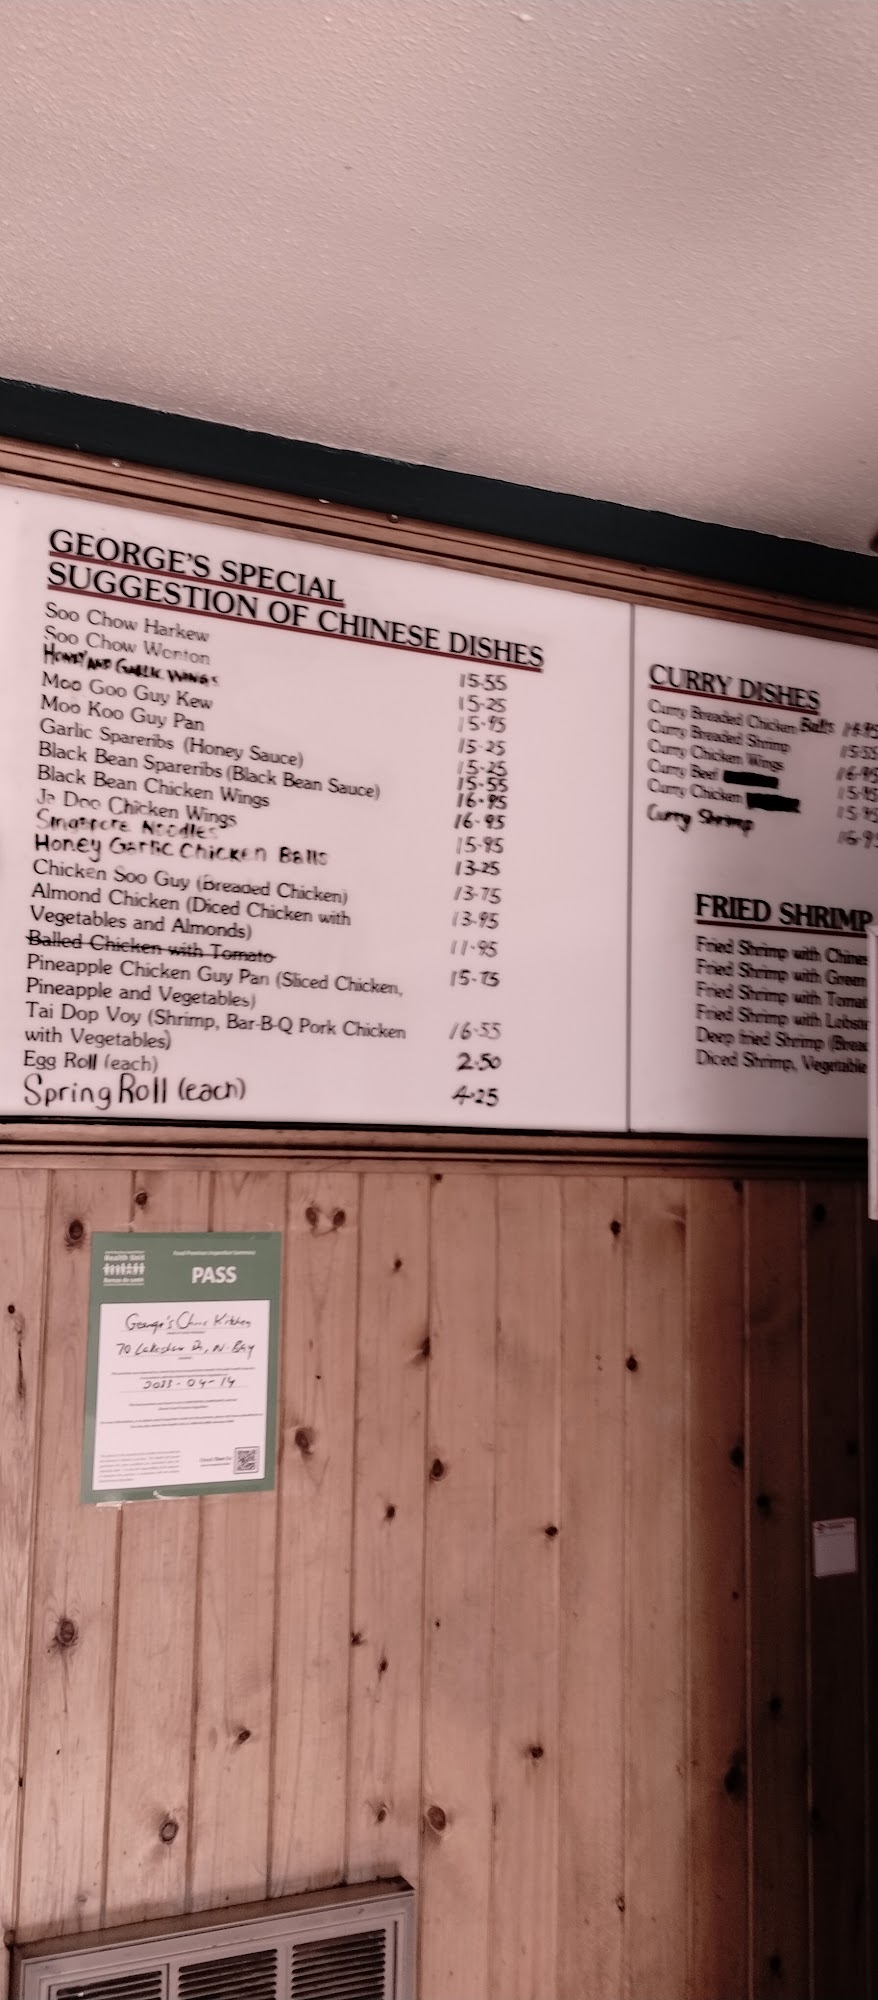 GEORGE'S SPECIAL
SUGGESTION OF CHINESE DISHES
Soo Chow Harkew 15.55
Soo Chow Wonton 15.25
HONEY AND GARLIC WINGS 15.95
Moo Goo Guy Kew 15.25
Moo Koo Guy Pan 15.25
Garlic Spareribs (Honey Sauce) 15.55
Black Bean Spareribs (Black Bean Sauce) 16.95
Black Bean Chicken Wings 16.95
Ja Doo Chicken Wings 15.95
Singapore Noodles 13.25
Honey Garlic Chicken Balls 13.75
Chicken Soo Guy (Breaded Chicken) 13.95
Almond Chicken (Diced Chicken with
Vegetables and Almonds) 11.95
Balled Chicken with Tomato
Pineapple Chicken Guy Pan (Sliced Chicken, 15.75
Pineapple and Vegetables)
Tai Dop Voy (Shrimp, Bar-B-Q Pork Chicken 16.55
with Vegetables)
Egg Roll (each) 2.50
Spring Roll (each) 4.25
CURRY DISHES
Curry Breaded Chicken Balls
Curry Breaded Shrimp 15.55
Curry Chicken Wings 16.95
Curry Beef 15.95
Curry Chicken 15.95
Curry Shrimp
FRIED SHRIMP
Fried Shrimp with
Fried Shrimp with Green
Fried Shrimp with
Fried Shrimp with
Deep fried Shrimp
Diced Shrimp,
Health Unit
Food Premises Inspection Summary
PASS
George's Kitchen
70 N. Bay
04-14